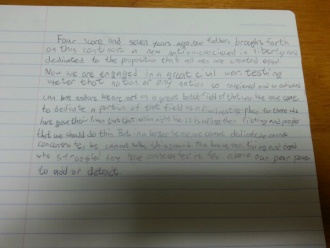 Four score and seven years ago our fathers brought forth
on this continent a new nation conceived in liberty and
dedicated to the proposition that all men are created equal
Now we are engaged in a great civil war testing
that nation or any nation so conceived and so
can long endure. We are met on a great battle field of that We have come
to dedicate a portion of that field as a final resting place to those who
here gave their lives that that nation might live. It is altogether fitting and proper
that we should do this. But in a larger sense we cannot dedicate we cannot
consecrate we cannot this ground The brave men living and dead
who struggled here have consecrated it far above our poor power
to add or detract.